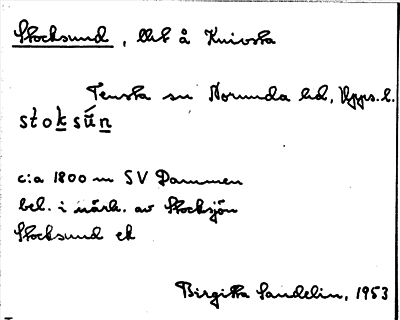 Stocksund, lht å Knivsta
Tensta sn Norunda hd, Upps. l.
stoksún
c:a 1800 m SV Dammen
bel. i närh. av Stocksjön
Stocksund ek
Birgitta Sandelin, 1953